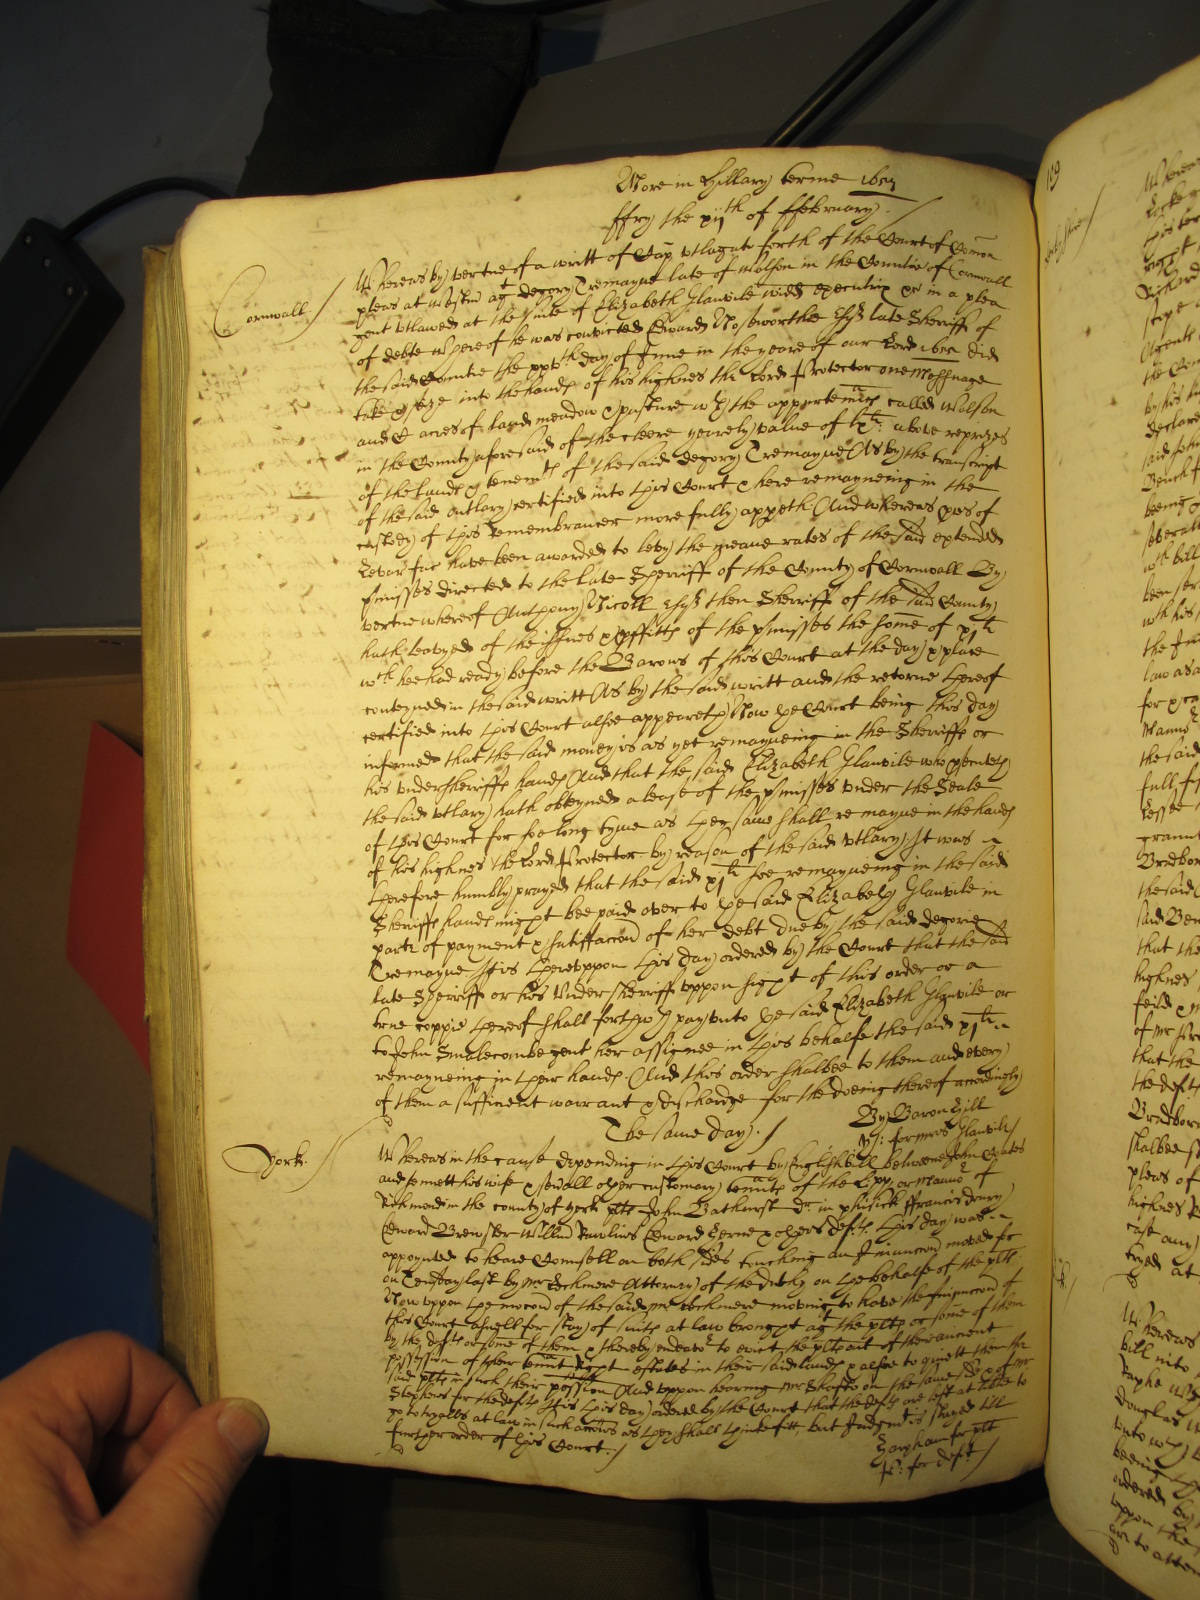 More in Hillary terme 1657
ffry the xijth of ffebruary.
Cornwall.
Whereas by vertue of a writt of Cap vtlagat forth of the Court of Comon
pleas at Westm agt degory Tremayne late of Wolson in the Countie of Cornwall
gent vtlawed at the suite of Elizabeth Glanvile widd executrix &c in a plea
of debte whereof he was convicted Edward Noseworthie Esqr late Sherriffe of
the said Countie the xxvth day of June in the yeare of our Lord did
take & seize into the hands of his highnes the Lord Protector one Messuage
and C acres of land meadow & pasture wth the appurtenncs called Wolson
in the County aforesaid of the cleere yearely value of above reprizes
of the lands & tenemts of the said degory Tremayne As by the transcript
of the said outlary certified into this Court & here remayneing in the
custody of this Remembrancer more fully appeth And whereas pces of
Levar fac have been awarded to levy the meane rates of the said extended
pmisses directed to the late Sherriff of the County of Cornwall By
vertue whereof Anthony Nicoll Esqr then Sherriff of the said County
hath leavyed of the issues & pffitts of the pmisses the some of xjli
wch hee had ready before the Barons of this Court at the day & place
conteyned in the said writt As by the said writt and the retorne thereof
certified into this Court alsoe appeareth Now the Court being this day
informed that the said money is as yet remayneing in the Sherriffs or
his vndersherriffs hands And that the said Elizabeth Glanvile who psecuted
the said vtlary hath obteyned a lease of the pmisses vnder the Seale
of this Court for soe long tyme as they same shall remayne in the hands
of his highnes the Lord Protector by reason of the said vtlary It was
therefore humbly prayed that the said xjli soe remayneing in the said
Sherriffs hands might bee paid over to the said Elizabeth Glanvile in
parte of payment & satisfaccon of her debt due by the said degorie
Tremayne It is therevppon this day ordered by the Court that the said
late Sherriff or his Vndersherriff vppon sight of this order or a
true coppie thereof shall forthwth pay vnto the said Elizabeth Glanvile or
to John Smalecombe gent her assignee in this behalfe the said xjli
remayneing in their hands. And this order shalbee to them and every
of them a sufficient warrant & discharge for the doeing thereof accordingly
By Baron Hill
for mrs Glanvile
The same day.
York.
Whereas in the cause depending in this Court by English bill betweene John Coates
and Jennett his wife & severall other customary tennts of the Lpp or Mannor of
Richmond in the county of york plts John Bathurst Dr in phisick ffrancis drury
Edward Brewster Willm Rawlins Edward Herne & others defts this day was
appoynted to heare Counsell on both sides touching an Iniuncon moved for
on Tewsday last by mr Lechmere Attorney of the dutchy on the behalfe of the plts
Now vppon the mocon of the said mr Lechmere moving to have the Iniunccon of
this Court aswell for stay of suits at law brought agt the plts or some of them
by the defts or some of them & thereby endeavor to evict the plts out of the auncient
possession of their tennt Right estates in their said lands & alsoe to quiett them the
said plts in such their possession And vppon hearing mr Shafto on the same side & of mr
Stephens for the defts It is this day ordered by the Court that the defts are left at libtie to
go to tryalls at law in such accons as they shall thinke fitt, but Judgmt is stayed till
further order of this Court.
for plt
for deft
109